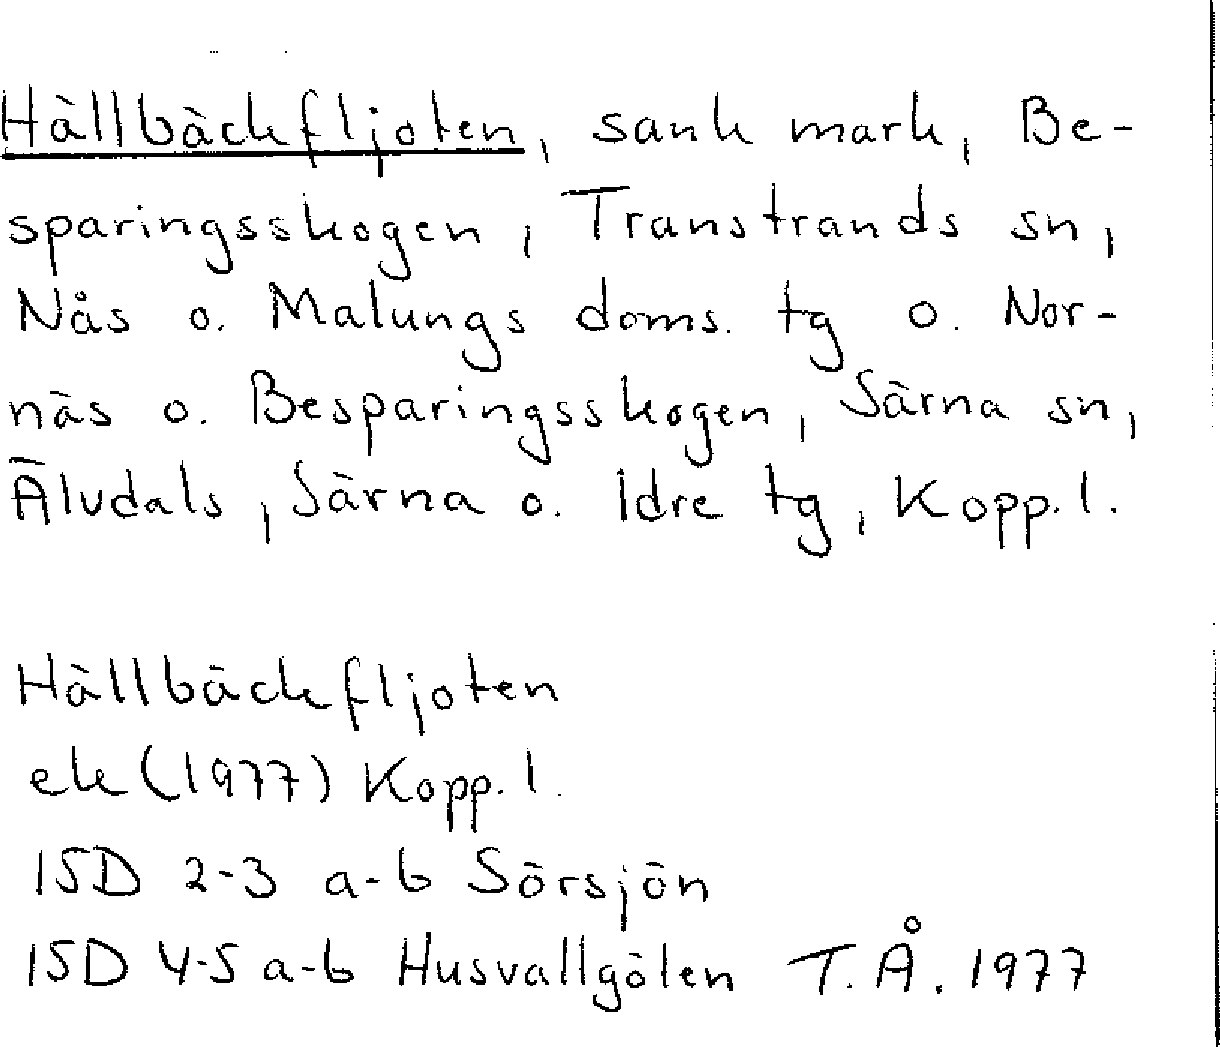 Hällbäckfljoten, sank mark, Be-
sparingsskogen, Transtrands sn,
Nås o. Malungs doms. tg o. Nor-
näs o. Besparingsskogen, Särna sn,
Älvdals, Särna o. Idre tg, Kopp. l.
Hällbäckfljoten
ek (1977) Kopp. l.
15D 2-3 a-b Sörsjön
15D 4-5 a-b Husvallgölen T.Å. 1977